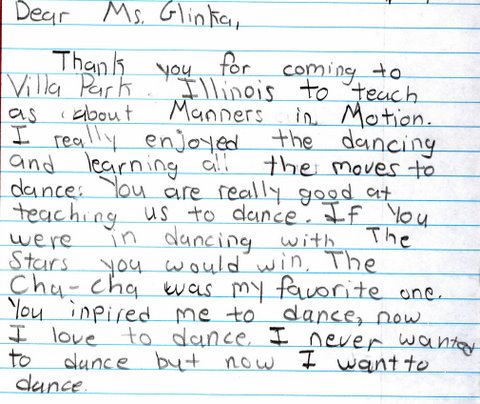 Dear Ms. Glinka,
Thank you for coming to
Villa Park. Illinois to teach
as about Manners in Motion.
I really enjoyed the dancing
and learning all the moves to
dance. You are really good at
teaching us to dance. If You
were in dancing with The
Stars you would win. The
Cha-cha was my favorite one.
You inpired me to dance, now
I love to dance. I never wanted
to dance but now I want to
dance.